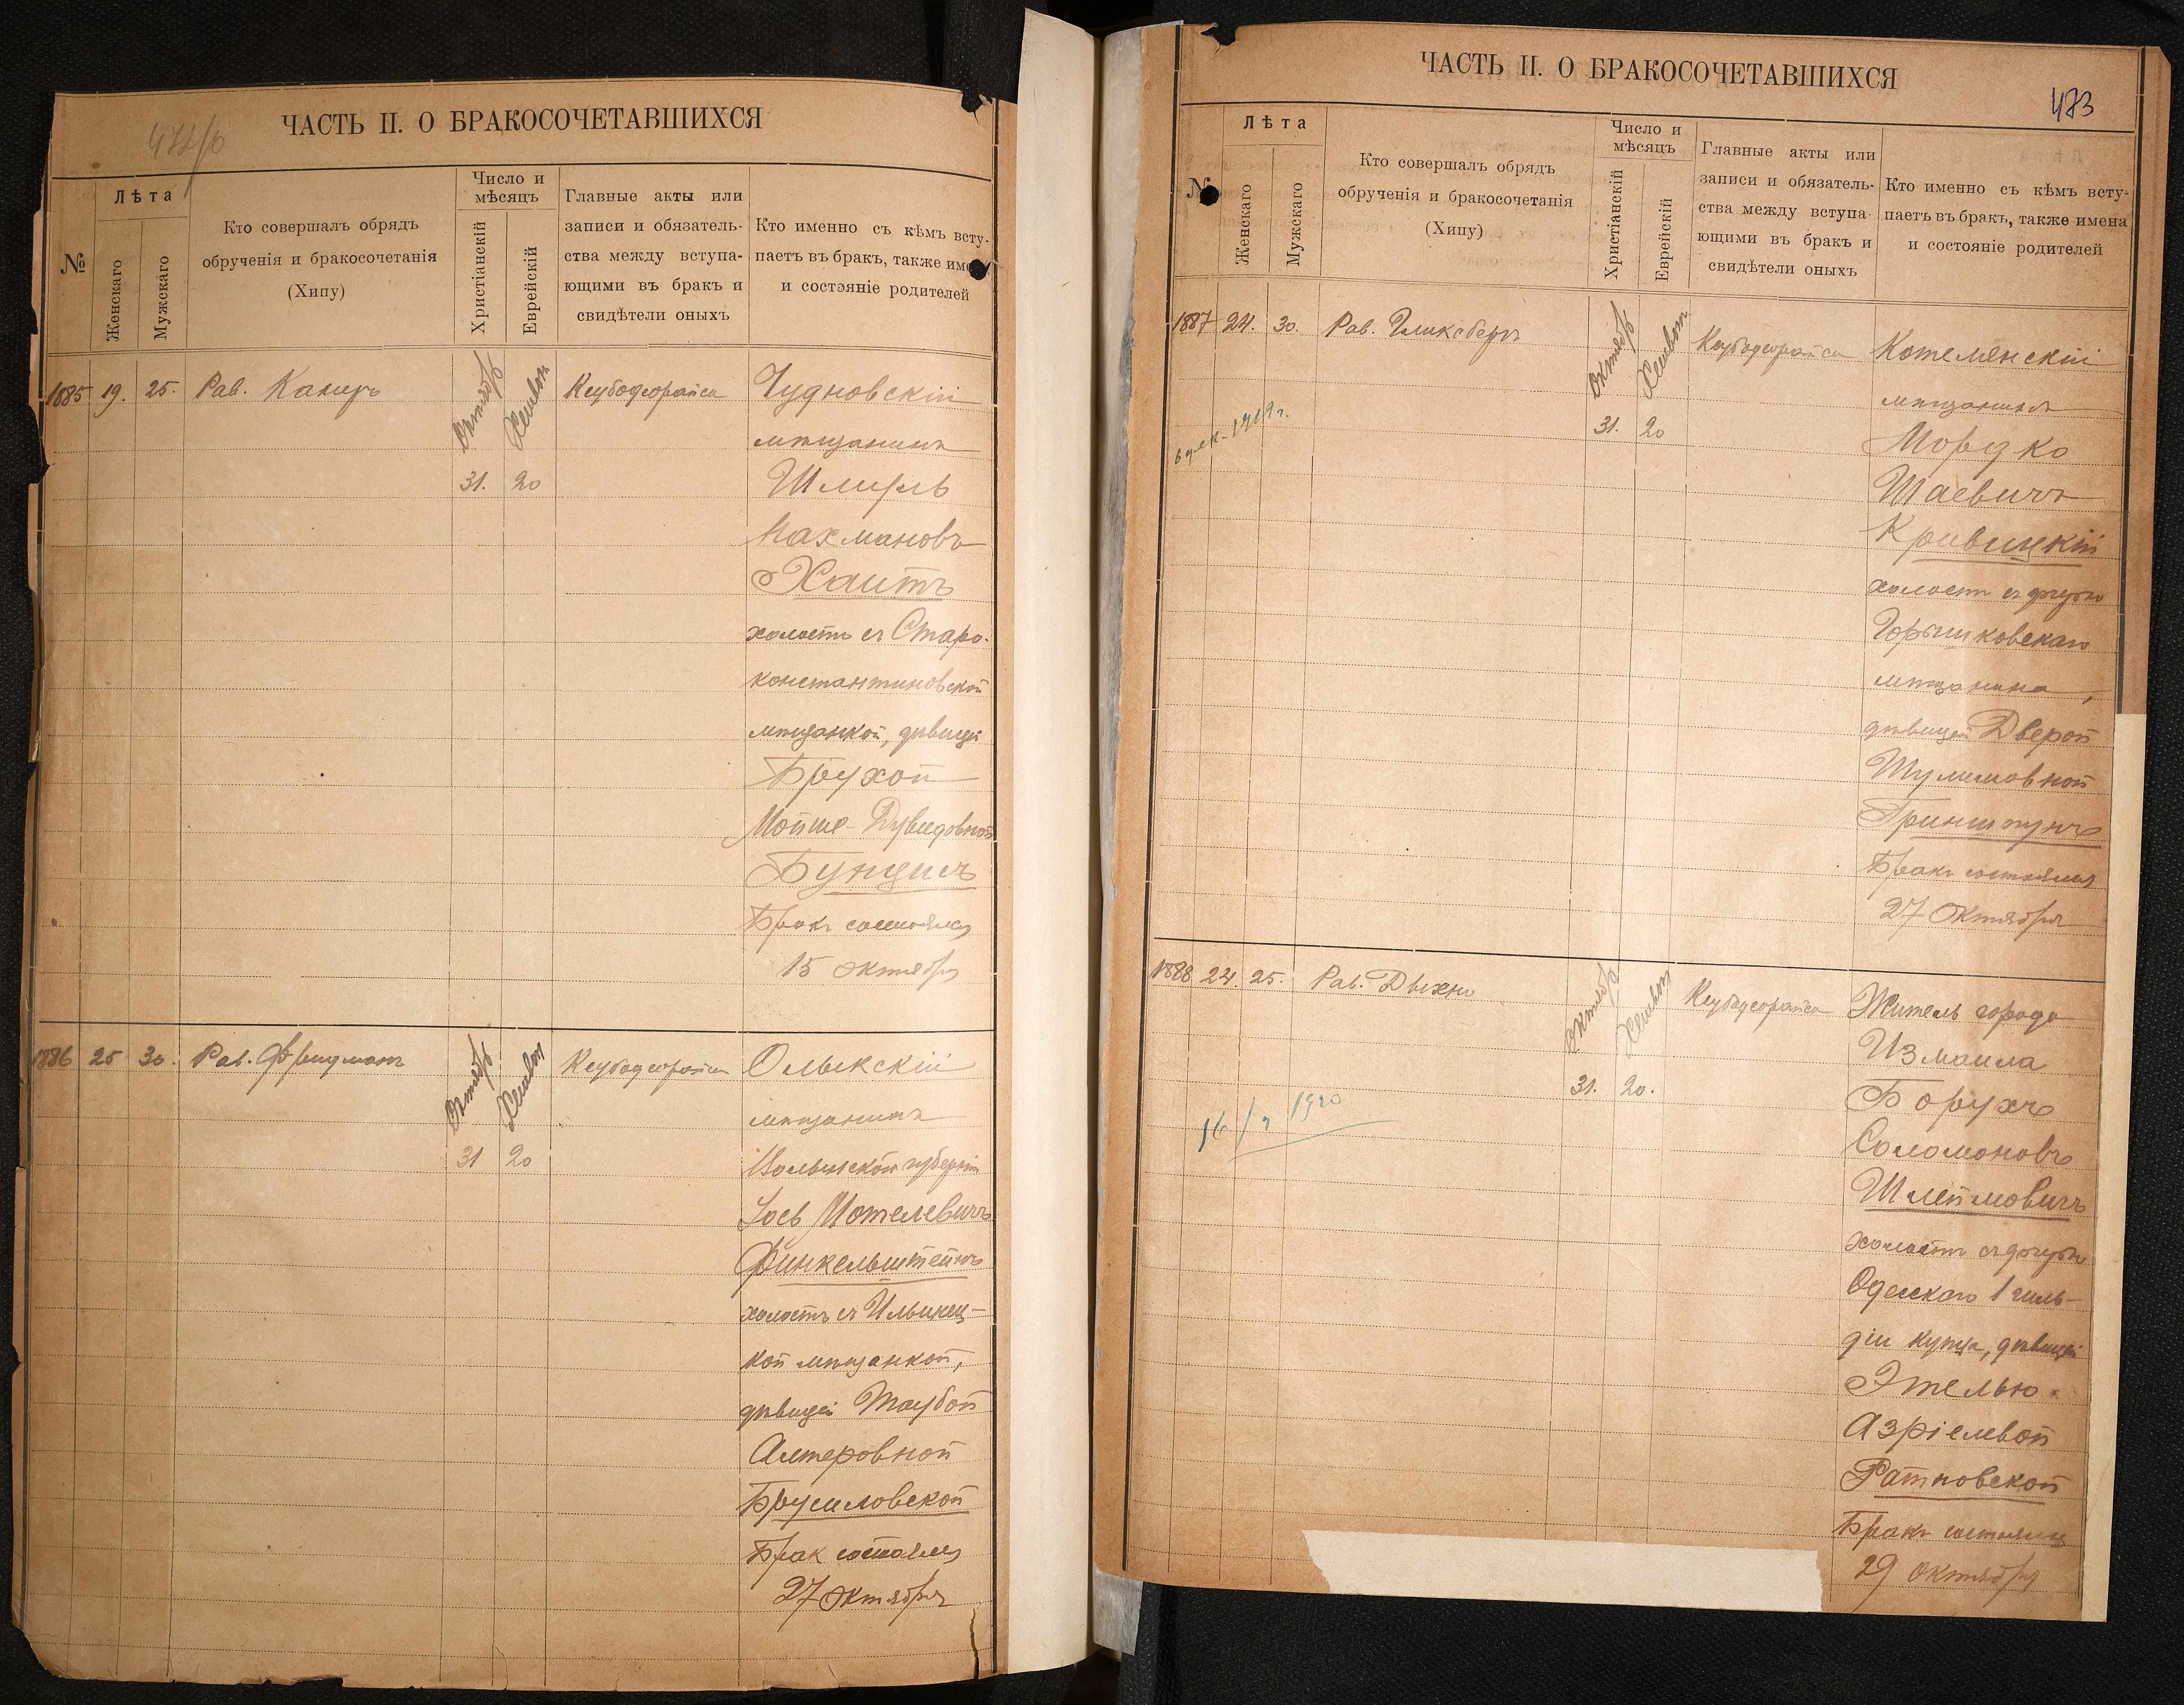 472/о
ЧАСТЬ II. О БРАКОСОЧЕТАВШИХСЯ
№
Лѣта
Женскаго
Мужскаго
Кто совершалъ обрядъ
обрученія и бракосочетанія
(Хипу)
Число и
мѣсяцъ
Христіанскій
Еврейскій
Главные акты или
записи и обязатель-
ства между вступа-
ющими въ бракъ и
свидѣтели оныхъ
Кто именно съ кѣмъ всту-
паетъ въ бракъ, также име
и состояніе родителей
1885 19. 25. Рав. Канеръ
Октябр Хешвон
31. 20
Кеубодеорайса
Чудновскій
мѣщанинъ
Шмиль
Нахмановъ
Хаитъ
холостъ съ Старо-
константиновской
мѣщанкой, дѣвицей
Брухой
Мойше-Дувидовной
Бунцисъ
Бракъ состоялся
15 октября
1886 25 30. Рав. Фридманъ
Октябр Хешвон
31 20
Кеубодеорайса
Олыкскій
мѣщанинъ
Волынской губерніи
Іось Мотелевичъ
Финкельштейнъ
холостъ съ Ильинец-
кой мѣщанкой,
дѣвицей Таубой
Алтеровной
Брусиловской
Брак состоялся
27 октября
ЧАСТЬ II. О БРАКОСОЧЕТАВШИХСЯ
473
№
Лѣта
Женскаго
Мужскаго
Кто совершалъ обрядъ
обрученія и бракосочетанія
(Хипу)
Число и
мѣсяцъ
Христіанскій
Еврейскій
Главные акты или
записи и обязатель-
ства между вступа-
ющими въ бракъ и
свидѣтели оныхъ
Кто именно съ кѣмъ всту-
паетъ въ бракъ, также имена
и состояніе родителей
1887 24. 30. Рав. Гликсбергъ
Октябр Хешвон
31. 20
Кеубодеорайса
1919 г.
Котелянскій
мѣщанинъ
Мордко
Шаевичъ
Кривицкій
холостъ съ дочерью
Горышковскаго
мѣщанина,
дѣвицей Дверой
Шулимовной
Гриншпунъ
Бракъ состоялся
27 Октября
1888 24. 25. Рав. Дыхно
Октябр Хешвон
31. 20.
Кеубодеорайса
1920
Житель города
Измаила
Борухъ
Соломоновъ
Шлеймовичъ
холостъ съ дочерью
Одесскаго 1 гиль-
діи купца, дѣвицей
Этелью
Азріелевой
Ратновской
Бракъ состоялся
29 октября